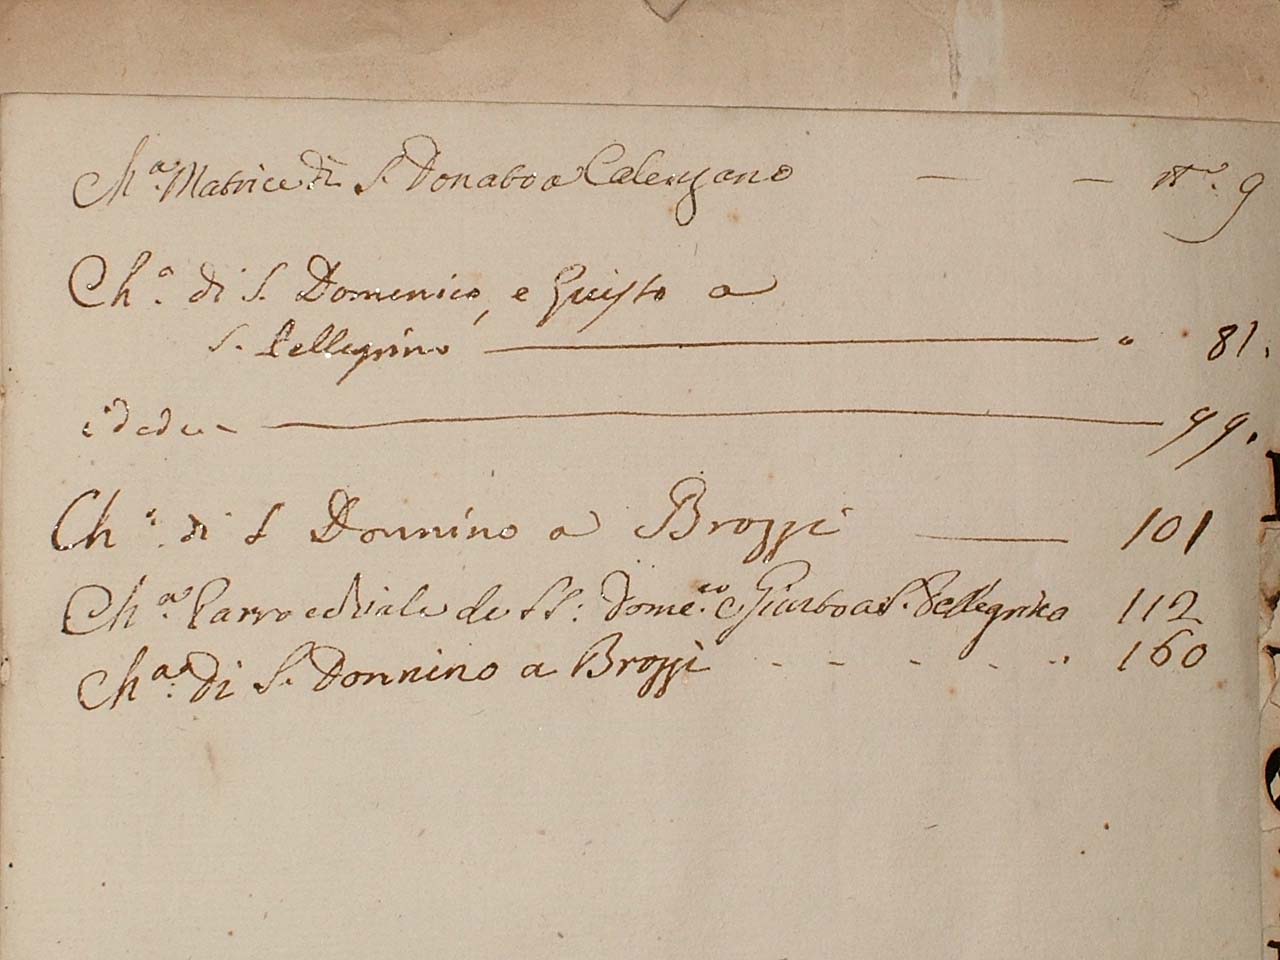 Ch.ª Matrice di S. Donato a Calenzano — — N.º 9
Ch.ª di S. Domenico, e Giusto a
S. Pellegrino — " 81.
99.
Ch.ª di S Donnino a Brozzi — 101
Ch.ª Parrochiale de SS: Dome.co e Giusto a S. Pellegrino 112
Ch.ª di S. Donnino a Brozzi - - - - - 160